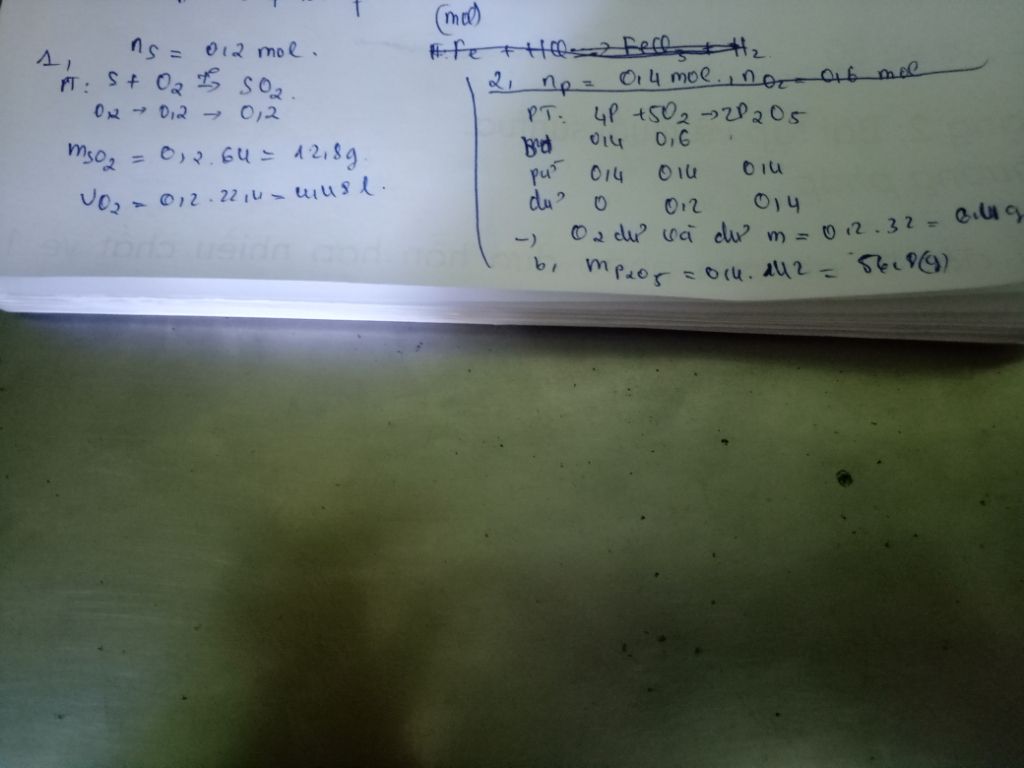 (mol)
1, nS = 0,2 mol.
PT: S + O2 t°→ SO2.
0,2 → 0,2 → 0,2
mSO2 = 0,2.64 = 12,8g.
VO2 = 0,2.22,4 = 4,48 l.
Fe + HCl → FeCl3 + H2
2, nP = 0,4 mol., nO2 = 0,6 mol
PT: 4P + 5O2 → 2P2O5
0,4 0,6
pư 0,4 0,4 0,4
dư 0 0,2 0,4
→ O2 dư và dư m = 0,2.32 =
b, mP2O5 = 0,4.142 = 56,8(g)